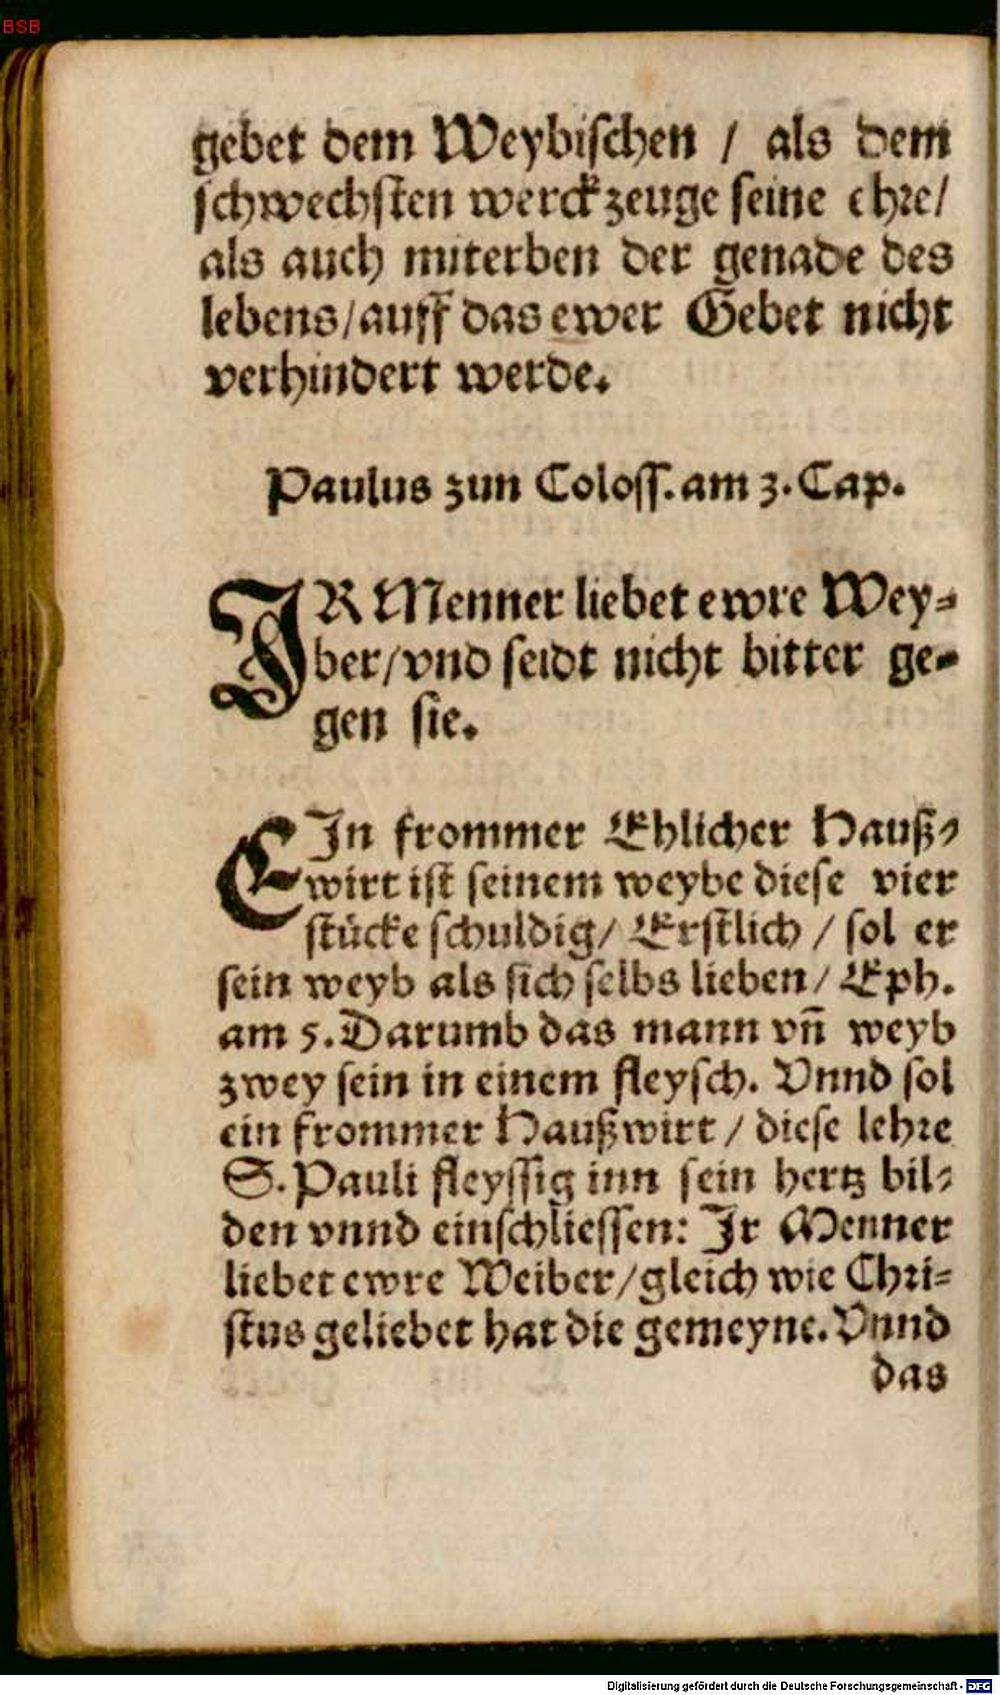 BSB
gebet dem Weybischen / als dem
schwechsten werckzeuge seine ehre/
als auch miterben der genade des
lebens/auff das ewer Gebet nicht
verhindert werde.
Paulus zun Coloss. am 3. Cap.
IR Menner liebet ewre Wey=
ber/vnd seidt nicht bitter ge=
gen sie.
EIn frommer Ehlicher Hauß=
wirt ist seinem weybe diese vier
stücke schuldig/ Erstlich / sol er
sein weyb als sich selbs lieben/ Eph.
am 5. Darumb das mann vñ weyb
zwey sein in einem fleysch. Vnnd sol
ein frommer Haußwirt / diese lehre
S. Pauli fleyssig inn sein hertz bil=
den vnnd einschliessen: Ir Menner
liebet ewre Weiber/gleich wie Chri=
stus geliebet hat die gemeyne. Vnnd
das
Digitalisierung gefördert durch die Deutsche Forschungsgemeinschaft - DFG